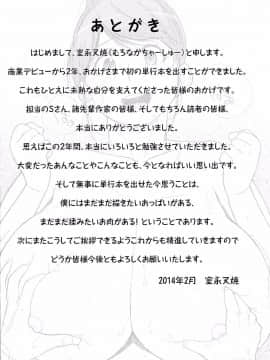 あとがき
はじめまして、室永叉焼(むろながちゃーしゅー)と申します。
商業デビューから2年、おかげさまで初の単行本を出すことができました。
これもひとえに未熟な自分を支えてくださった皆様のおかげです。
担当のSさん、諸先輩作家の皆様、そしてもちろん読者の皆様、
本当にありがとうございました。
思えばこの2年間、本当にいろいろと勉強させていただきました。
大変だったあんなことやこんなことも、今となればいい思い出です。
そして無事に単行本を出せた今思うことは、
僕にはまだまだ描きたいおっぱいがある、
まだまだ揉みたいお肉がある!ということであります。
次にまたこうしてご挨拶できるようこれからも精進していきますので
どうか皆様今後ともよろしくお願いいたします。
2014年2月 室永叉焼